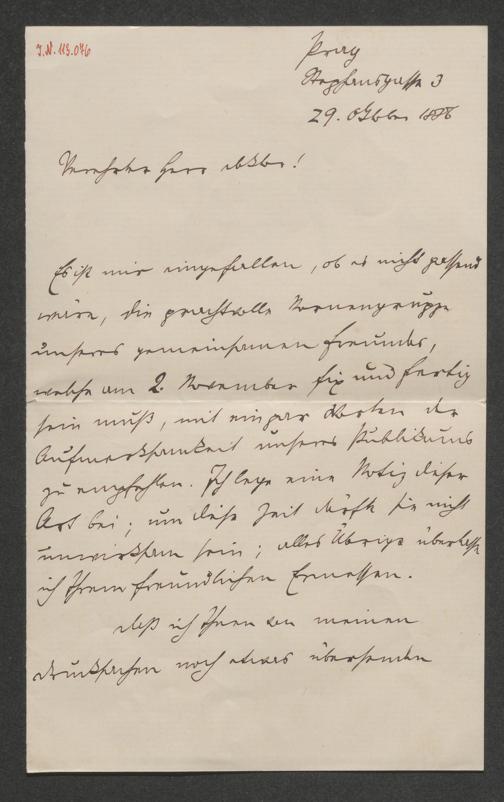 J.N. 113.076
Prag
Stephansgasse 3
29. Oktober 1886
Verehrter Herr Doktor!
Es ist mir eingefallen, ob es nicht passend
wäre, die prachtvolle Nornengruppe
unseres gemeinsamen Freundes,
welche am 2. November fix und fertig
sein muß, mit ein par Worten der
Aufmerksamkeit unseres Publikums
zu empfehlen. Ich lege eine Notiz dieser
Art bei; um diese Zeit dürfte sie nicht
unwirksam sein; alles Übrige überlasse
ich Ihrem freundlichen Ermessen.
Daß ich Ihnen von meinen
Drucksachen noch etwas übersenden